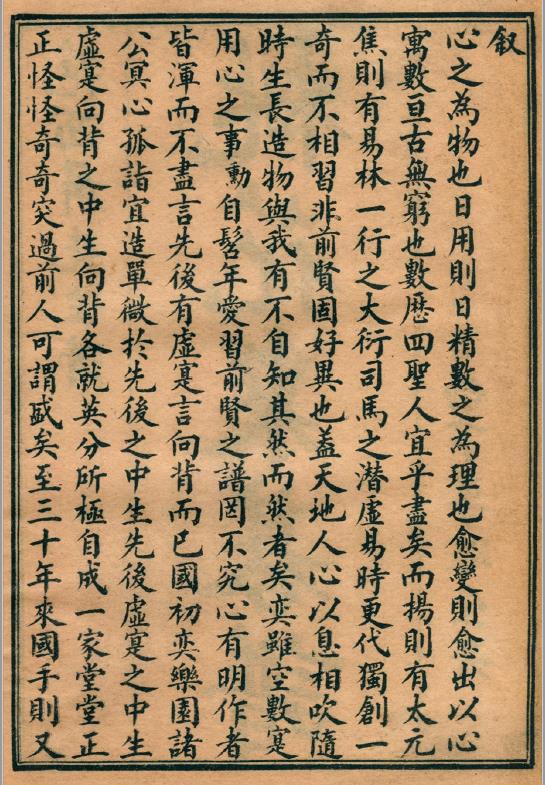 叙
心之為物也日用則日精數之為理也愈變則愈出以心
寓數亘古無窮也數歷四聖人宜乎盡矣而揚則有太元
焦則有易林一行之大衍司馬之潛虛易時更代獨創一
奇而不相習非前賢固好異也蓋天地人心以息相吹隨
時生長造物與我有不自知其然而然者矣奕雖空數寔
用心之事勳自髫年愛習前賢之譜罔不究心有明作者
皆渾而不盡言先後有虛寔言向背而已國初奕樂園諸
公冥心孤詣宜造單微於先後之中生先後虛寔之中生
虛寔向背之中生向背各就英分所極自成一家堂堂正
正怪怪奇奇突過前人可謂盛矣至三十年來國手則又